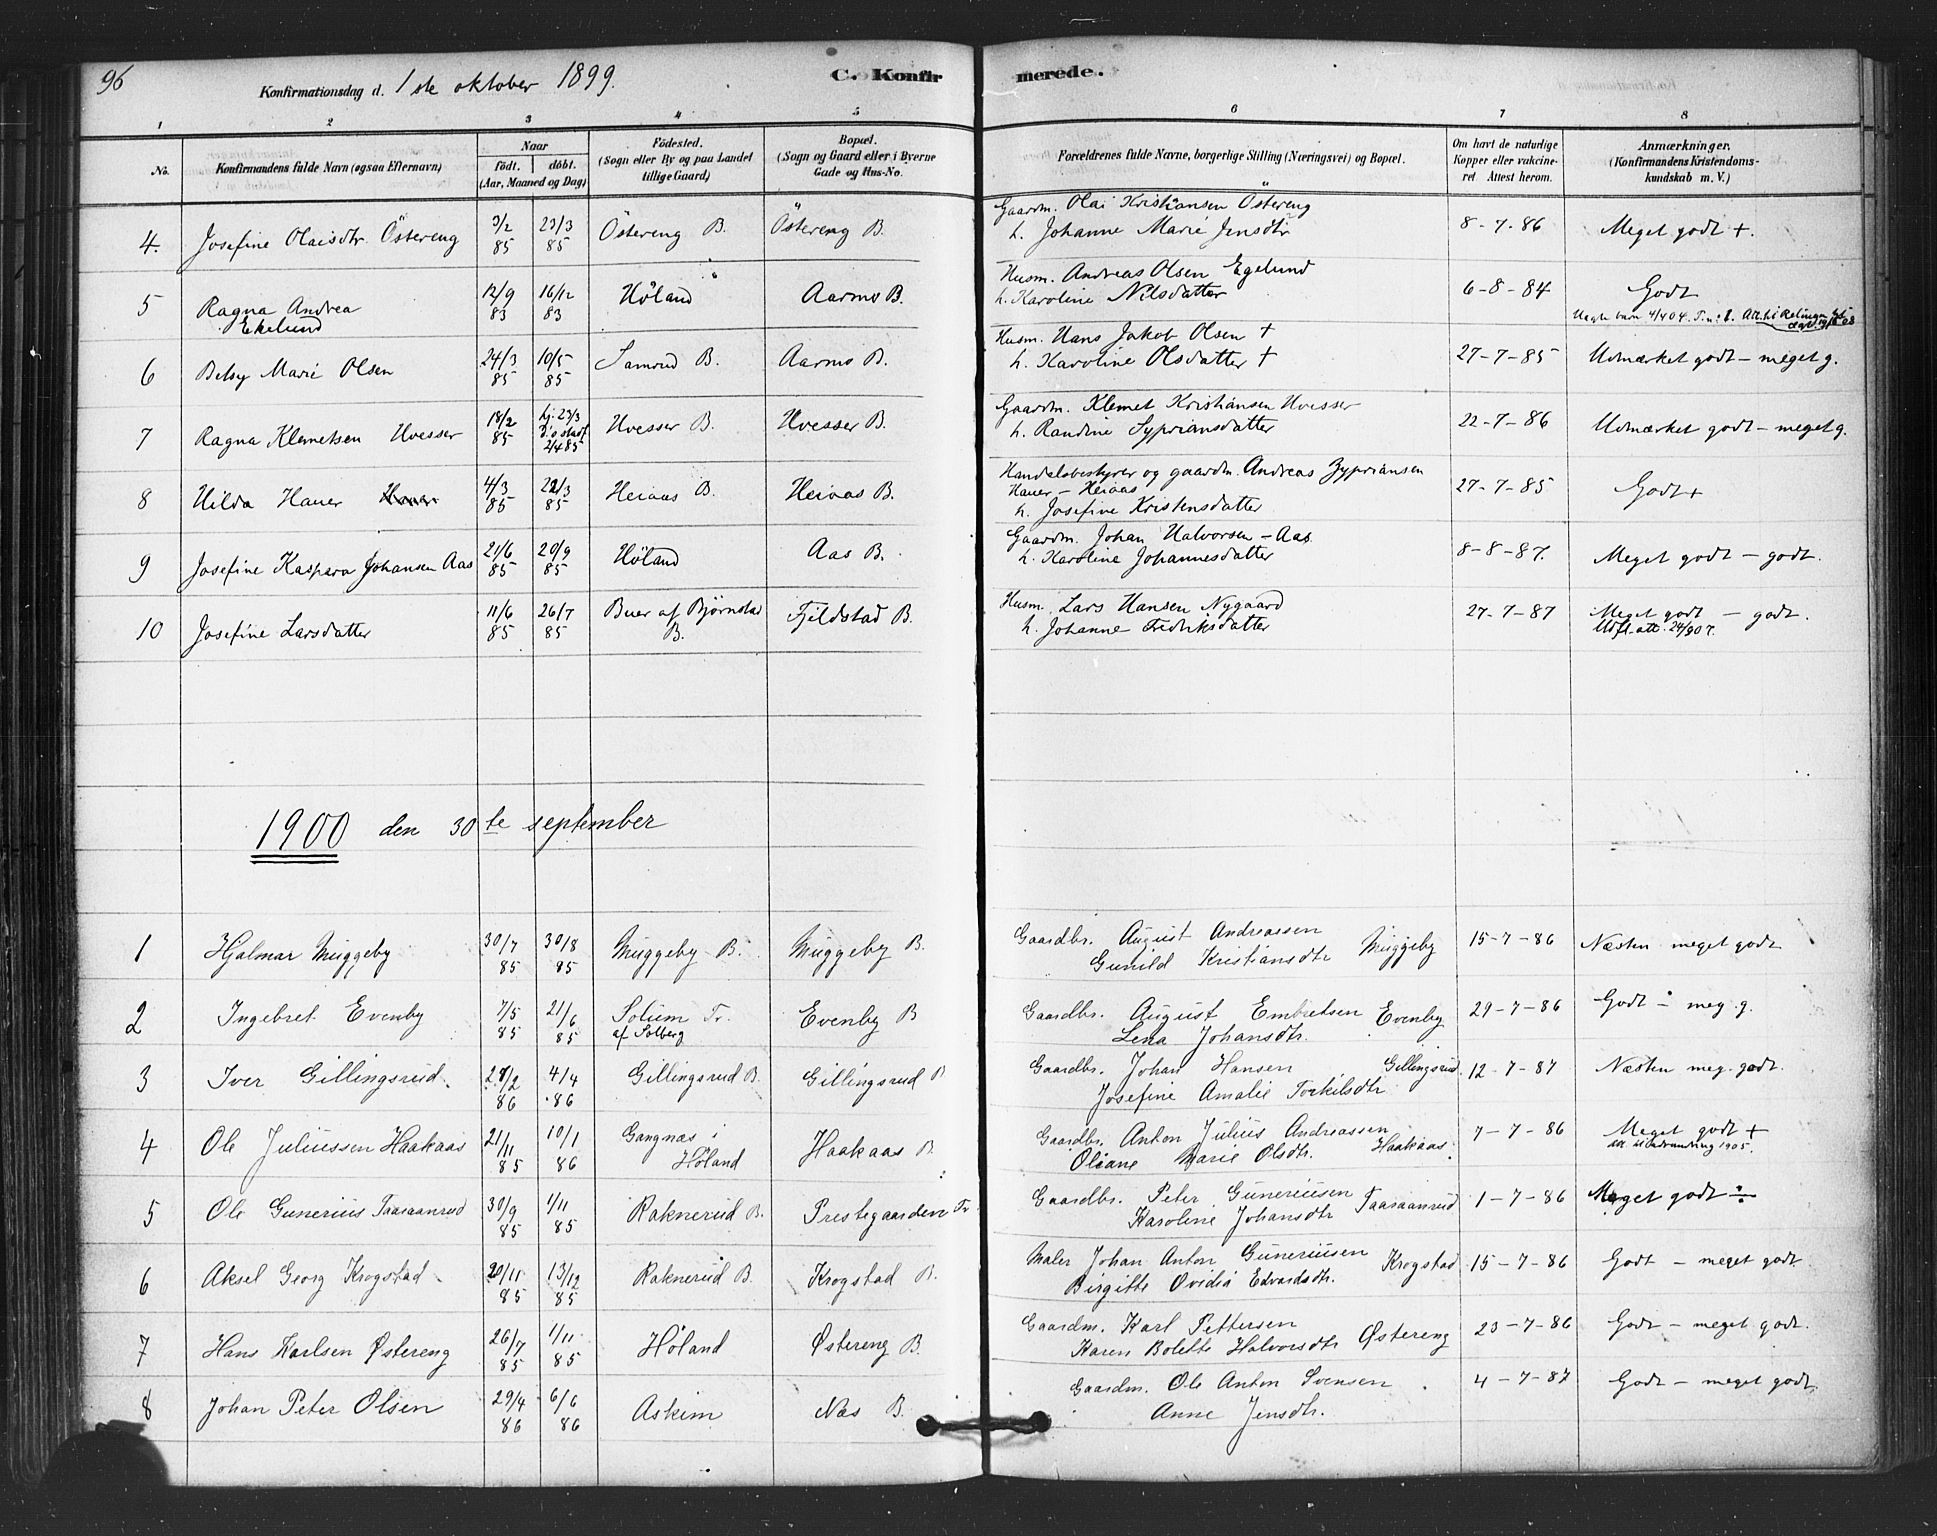 96
Konfirmationsdag d. 1ste oktober 1899.
C. Konfirmerede.
1 2 3 4 5 6 7 8
No.
Konfirmandens fulde Navn (ogsaa Efternavn)
Naar
födt. döbt.
(Aar, Maaned og Dag)
Födested.
(Sogn eller By og paa Landet
tillige Gaard)
Bopæl.
(Sogn og Gaard eller i Byerne
Gade og Hus-No.
Forældrenes fulde Navne, borgerlige Stilling (Næringsvei) og Bopæl.
Om havt de naturlige
Kopper eller vaccine-
ret Attest herom.
Anmærkninger.
(Konfirmandens Kristendoms-
kundskab m. V.)
4. Josefine Olaisdtr. Östereng 3/2 85 23/3 85 Östereng B. Östereng B. Gaardm. Olai Kristiansen Östereng
h. Johanne Marie Jensdtr 8-7-86 Meget godt +.
5 Ragna Andrea
Ekelund 12/9 83 16/12 83 Höland Aarmo B. Husm. Andreas Olsen Egelund
h. Karoline Nilsdatter 6-8-84 Godt
6 Betsy Marie Olsen 24/3 85 10/5 85 Samrud B. Aarmo B. Husm. Hans Jakob Olsen +
h. Karoline Olsdatter + 27-7-85 Udmærket godt – meget g.
7 Ragna Klemetsen Hvesser 18/2 85 hj. 23/3 2/4 85 Hvesser B. Hvesser B. Gaardm. Klemet Kristiansen Hvesser
h. Randine Sypriansdatter 22-7-86 Udmærket godt – meget g.
8 Hilda Hauer 4/3 85 22/3 85 Heiaas B. Heiaas B. Handelsbestyrer og gaardm. Andreas Zypriansen
Hauer – Heiaas
h. Josefine Kristensdatter 27-7-85 Godt +
9 Josefine Kaspara Johansen Aas 21/6 85 20/9 85 Höland Aas B. Gaardm. Johan Halvorsen – Aas
h. Karoline Johannesdatter 8-8-87. Meget godt – godt.
10 Josefine Larsdatter 11/6 85 26/7 85 Buer af Bjørnstad
B. Fjeldstad B. Husm. Lars Hansen Nygaard
h. Johanne Fredriksdatter 27-7-87 Meget godt – godt.
Udfl. att. 24/9 07.
1900 den 30te september
1 Hjalmar Muggeby 30/7 85 30/8 85 Muggeby B. Muggeby B. Gaardbr. August Andreassen
Gunild Kristiansdtr Muggeby 15-7-86 Næsten meget godt
2 Ingebret Evenby 7/5 85 21/6 85 Solum Tr.
af Solberg Evenby B Gaardbr. August Embretsen Evenby
Lena Johansdtr. 29-7-86 Godt – meg. g.
3 Iver Gillingsrud. 28/2 86 4/4 86 Gillingsrud B. Gillingsrud B Gaardbr. Johan Hansen Gillingsrud
Josefine Amalie Torkilsdtr 12-7-87 Næsten meg. godt.
4 Ole Juliussen Haakaas 21/11 85 10/1 86 Gangnæs i
Höland Haakaas B. Gaardbr. Anton Julius Andreassen
Oliane Marie Olsdtr. Haakaas. 7-7-86 Meget godt +
att. Udvandring 1905.
5 Ole Gunerius Taasaanrud 30/9 85 1/11 85 Raknerud B. Prestegaarden Tr. Gaardbr. Peter Guneriusen Taasaanrud
Karoline Johansdtr 1-7-86 Meget godt ÷
6 Aksel Georg Krogstad 20/11 85 13/12 85 Raknerud B. Krogstad B. Maler Johan Anton Gunerussen Krogstad
Birgitte Ovidia Edvardsdtr. 15-7-86 Godt – meget godt
7 Hans Karlsen Østereng 26/7 85 1/11 85 Höland Østereng B. Gaardm. Karl Pettersen
Karen Bolette Halvorsdtr Østereng 23-7-86 Godt – meget godt.
8 Johan Peter Olsen 29/4 86 6/6 86 Askim Næs B. Gaardm. Ole Anton Svensen
Anne Jensdtr. 4-7-87 Godt – meget godt.